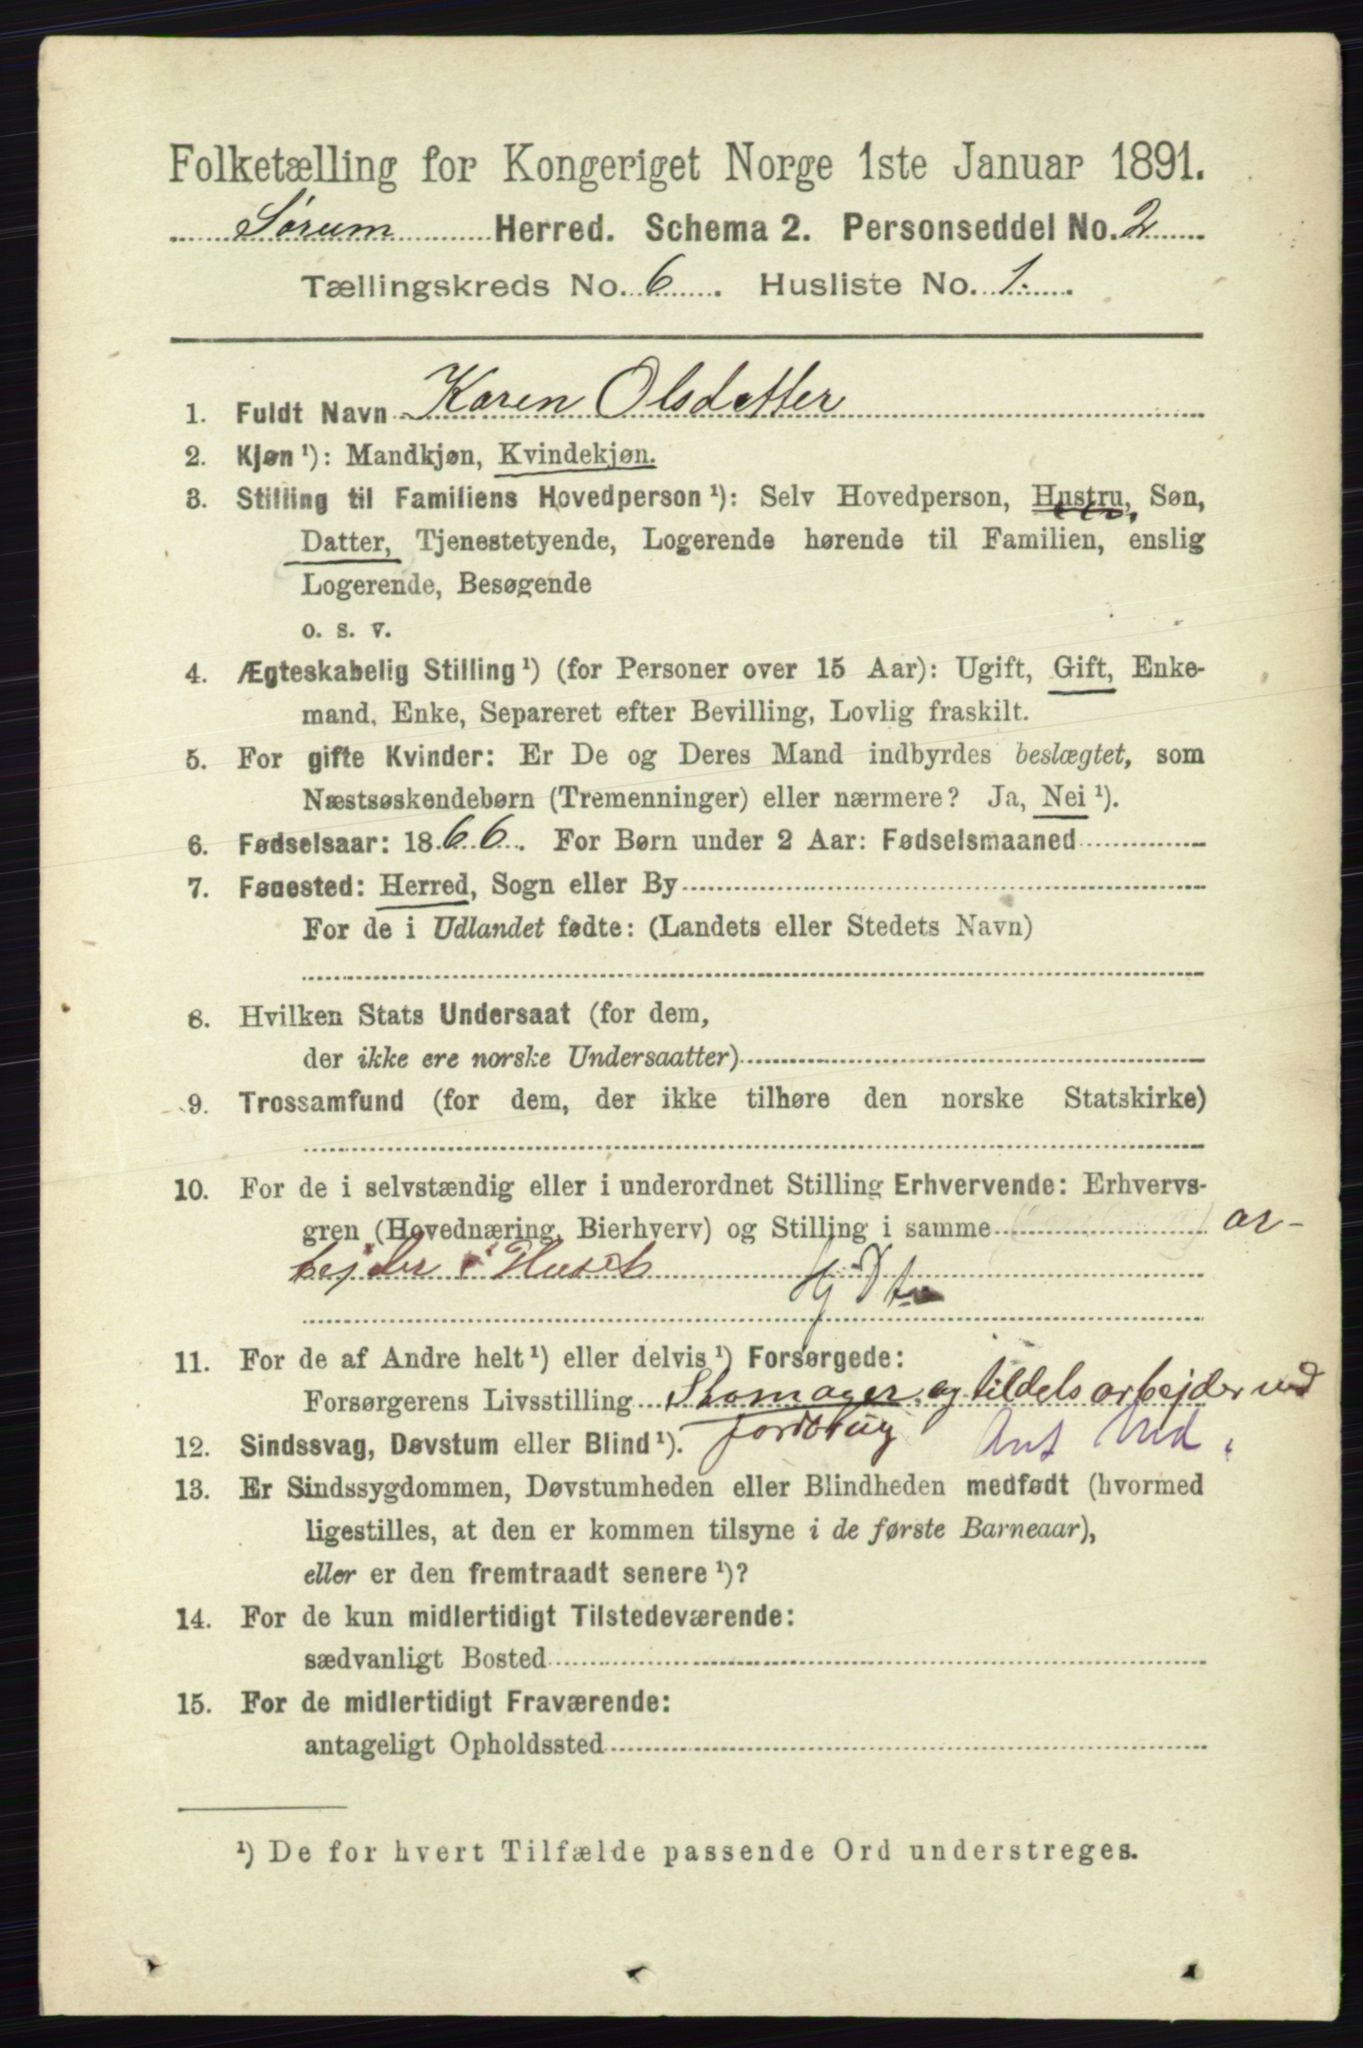 Folketælling for Kongeriget Norge 1ste Januar 1891.
Sørum Herred. Schema 2. Personseddel No. 2
Tællingskreds No. 6. Husliste No. 1.
1. Fuldt Navn Karen Olsdatter
2. Kjøn ¹): Mandkjøn, Kvindekjøn.
3. Stilling til Familiens Hovedperson ¹): Selv Hovedperson, Hustru, Søn,
Datter, Tjenestetyende, Logerende hørende til Familien, enslig
Logerende, Besøgende
o. s. v.
4. Ægteskabelig Stilling ¹) (for Personer over 15 Aar): Ugift, Gift, Enke-
mand, Enke, Separeret efter Bevilling, Lovlig fraskilt.
5. For gifte Kvinder: Er De og Deres Mand indbyrdes beslægtet, som
Næstsøskendebørn (Tremenninger) eller nærmere? Ja, Nei ¹).
6. Fødselsaar: 1866. For Børn under 2 Aar: Fødselsmaaned
7. Fødested: Herred, Sogn eller By
For de i Udlandet fødte: (Landets eller Stedets Navn)
8. Hvilken Stats Undersaat (for dem,
der ikke ere norske Undersaatter)
9. Trossamfund (for dem, der ikke tilhøre den norske Statskirke)
10. For de i selvstændig eller i underordnet Stilling Erhvervende: Erhvervs-
gren (Hovednæring, Bierhverv) og Stilling i samme ar-
bejder i Huset
11. For de af Andre helt ¹) eller delvis ¹) Forsørgede:
Forsørgerens Livsstilling Skomager og tildels arbejder ved
jordbrug
12. Sindssvag, Døvstum eller Blind ¹).
13. Er Sindssygdommen, Døvstumheden eller Blindheden medfødt (hvormed
ligestilles, at den er kommen tilsyne i de første Barneaar),
eller er den fremtraadt senere ¹)?
14. For de kun midlertidigt Tilstedeværende:
sædvanligt Bosted
15. For de midlertidigt Fraværende:
antageligt Opholdssted
¹) De for hvert Tilfælde passende Ord understreges.